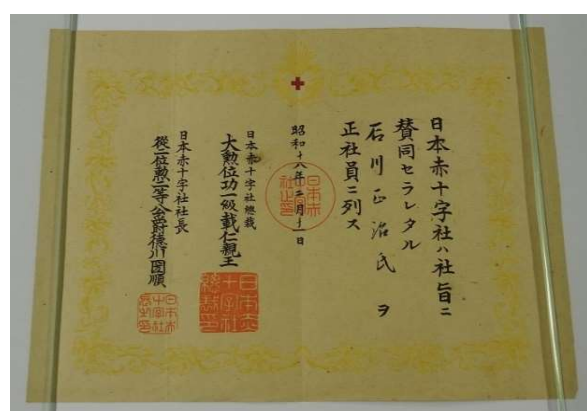 日本赤十字社ハ社旨ニ
賛同セラレタル
石川正治氏ヲ
正社員ニ列ス
昭和十八年二月十一日
日本赤十字社總裁
大勲位功一級載仁親王
日本赤十字社社長
從二位勲一等公爵德川圀順